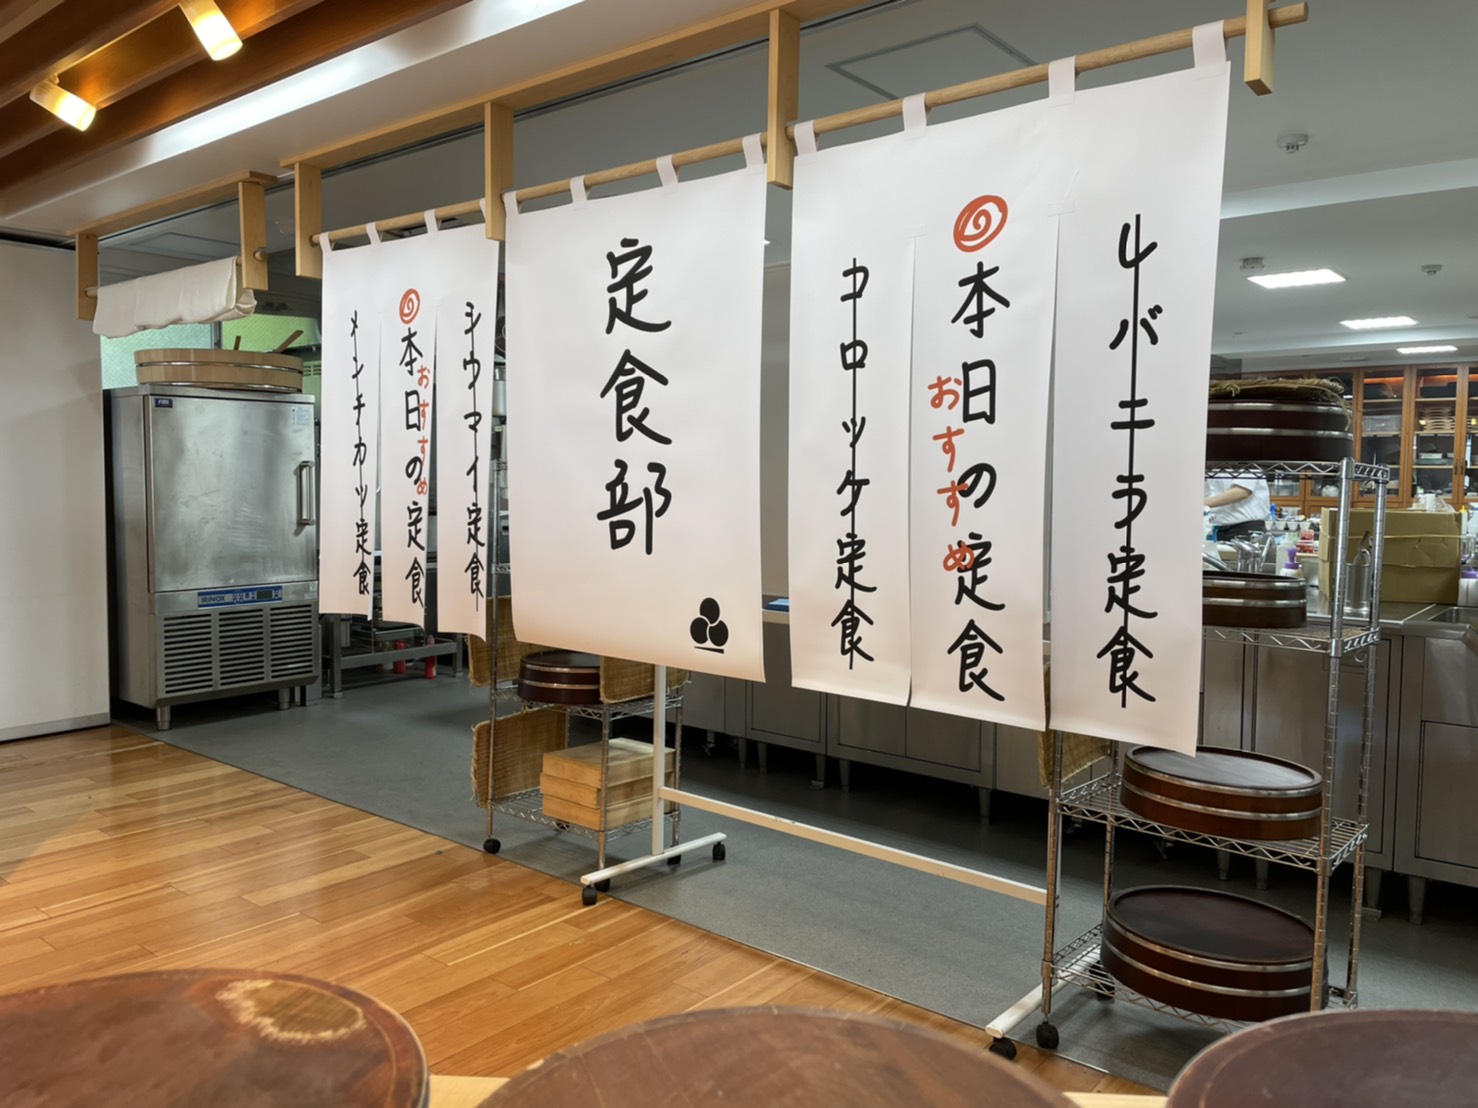 メンチカツ定食
本日の定食
おすすめ
シウマイ定食
定食部
コロッケ定食
本日の定食
おすすめ
レバニラ定食